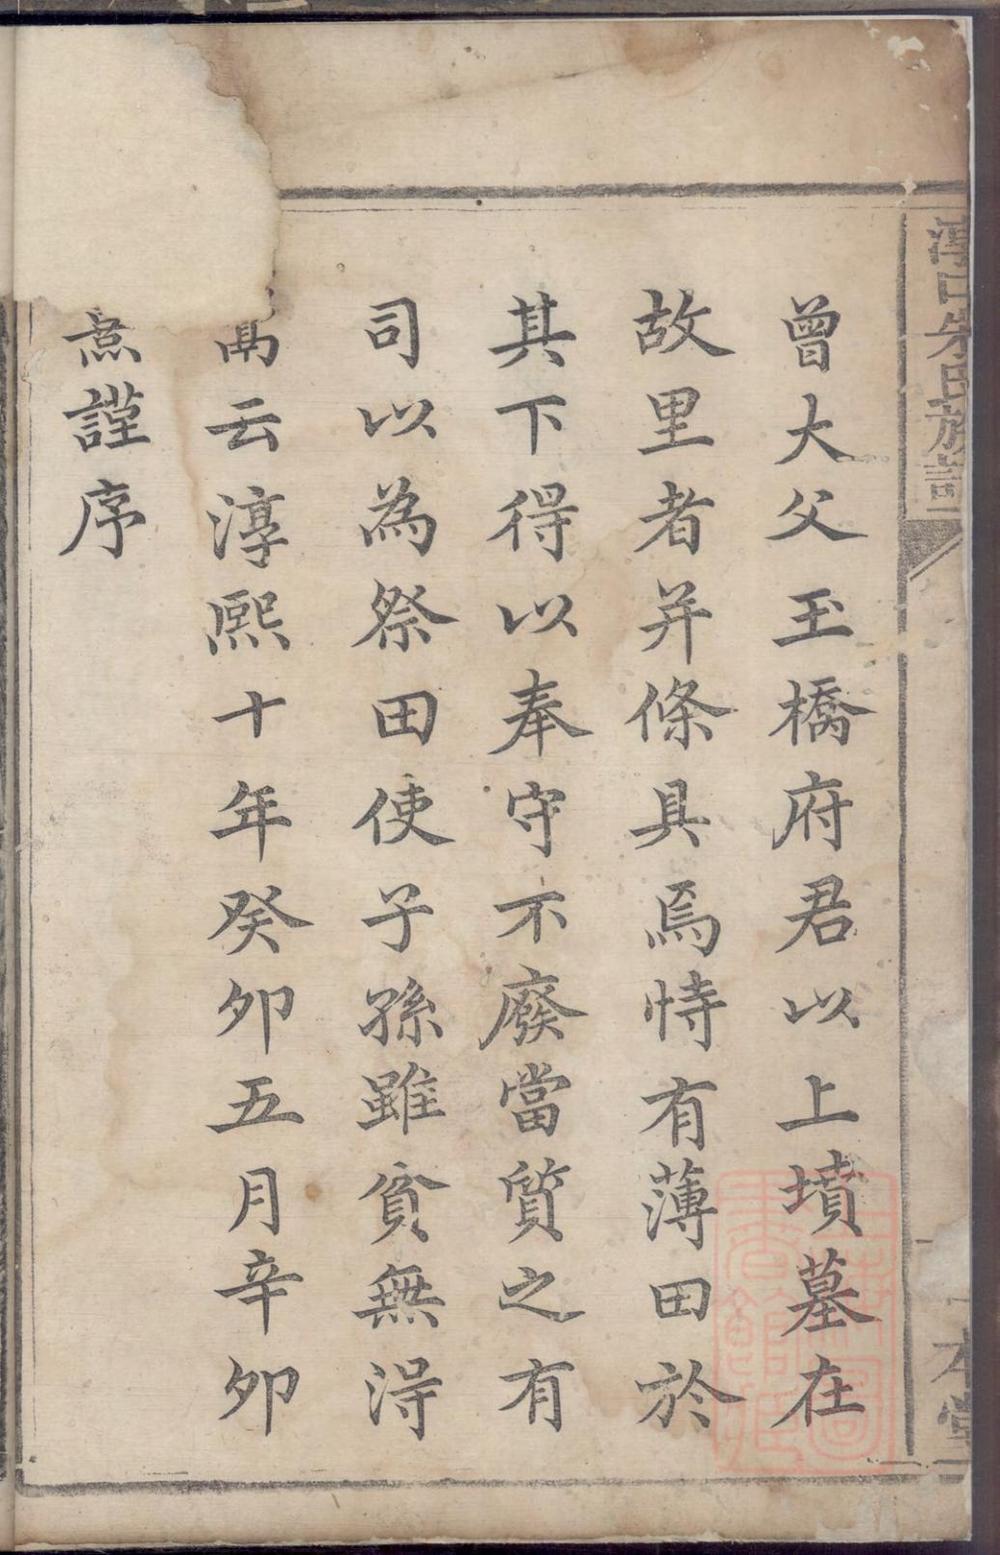 曾大父玉橋府君以上墳墓在
故里者并條具焉恃有薄田於
其下得以奉守不廢當質之有
司以為祭田使子孫雖貧無淂
云淳熙十年癸卯五月辛卯
熹謹序
朱氏族譜
本堂